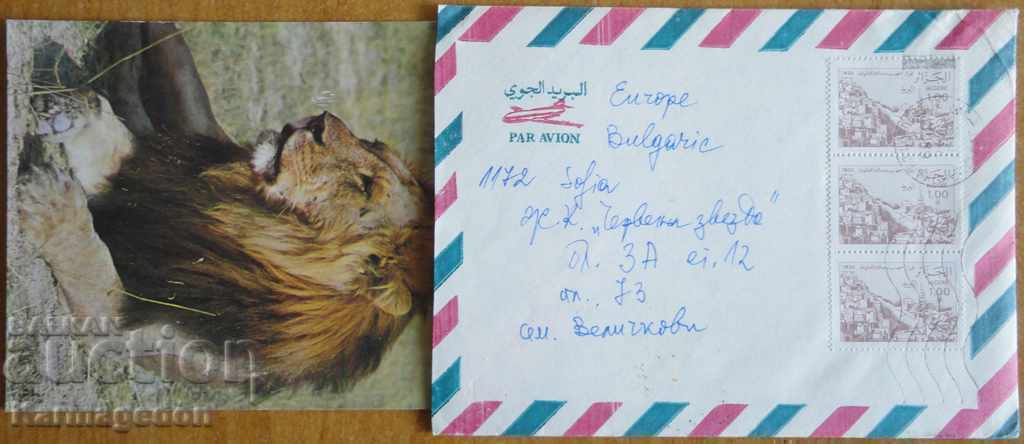 البريد الجوي
PAR AVION
Europe
Bulgaric
1172 Sofia
ж.к. „Червена звезда"
бл. 3А ет. 12
ап. 73
сем. Величкови
ALGERIE
1.00
1.00
1.00
BALKAN
auction
Karmagedon